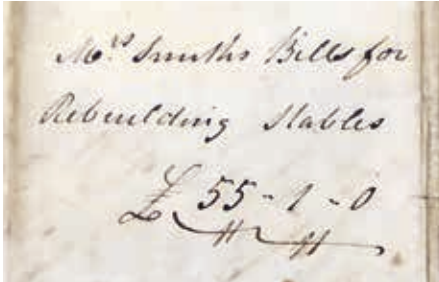 Mrs Smiths Bills for
Rebuilding Stables
£ 55 - 1 - 0